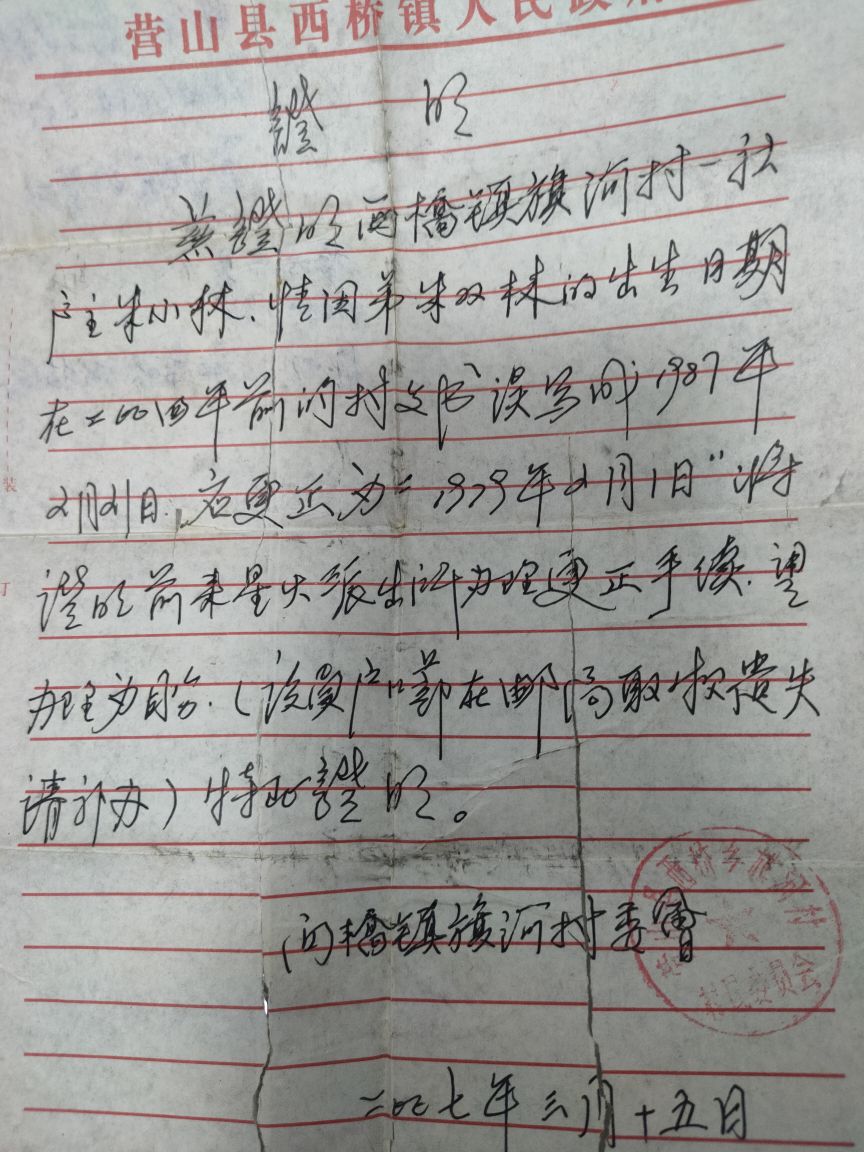 营山县西桥镇人民政府
證 明
兹證明西橋镇旗河村一社
户主朱小林、情因弟朱双林的出生日期
在二00四年前的村文书误写成1987年
2月21日,应更正为"1979年2月1日"将
證明前来星火派出所办理更正手续,望
办理为盼.(该员户口薄在邮局取
失
请补办)特此證明。
西橋镇旗河村委會
西桥乡旗河村
村民委员会
二00七年三月十五日
装
订